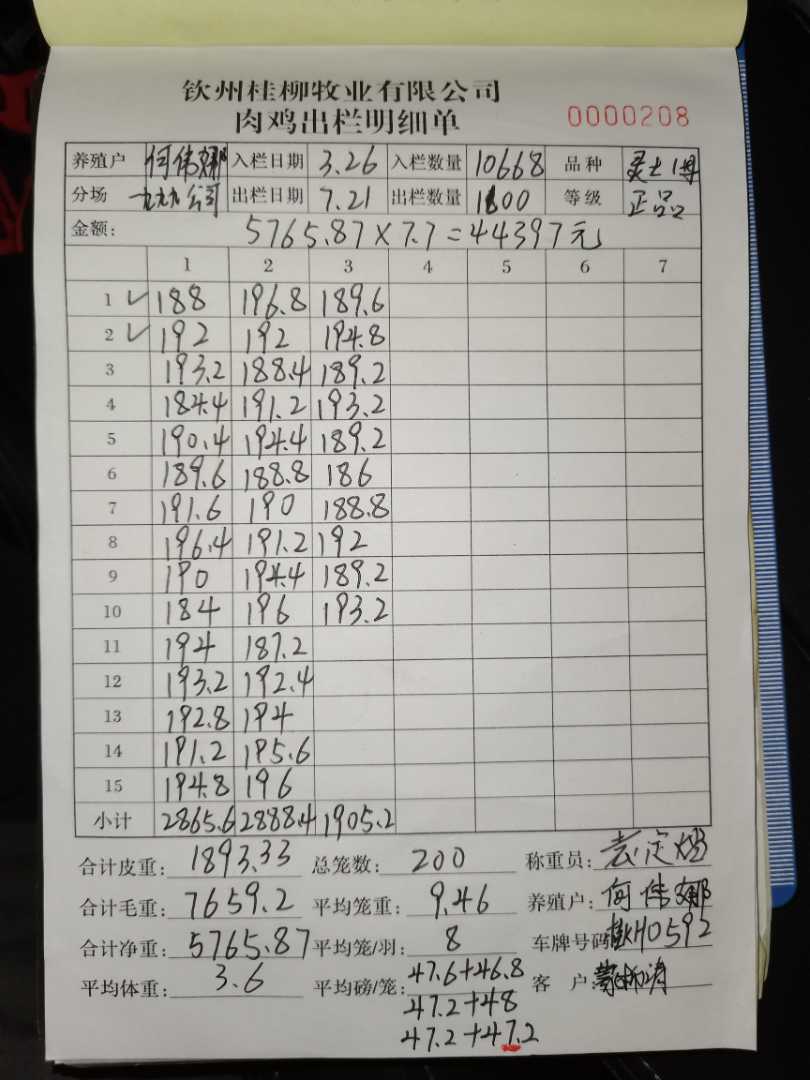 钦州桂柳牧业有限公司
肉鸡出栏明细单 0000208
养殖户 何伟娜 入栏日期 3.26 入栏数量 10668 品种
分场 九九九公司 出栏日期 7.21 出栏数量 1600 等级 正品
金额: 5765.87×7.7=44397元
1 2 3 4 5 6 7
1 ✓ 188 196.8 189.6
2 ✓ 192 192 194.8
3 193.2 188.4 189.2
4 184.4 191.2 193.2
5 190.4 194.4 189.2
6 189.6 188.8 186
7 191.6 190 188.8
8 196.4 191.2 192
9 190 194.4 189.2
10 184 196 193.2
11 194 187.2
12 193.2 192.4
13 192.8 194
14 191.2 195.6
15 194.8 196
小计 2865.6 2888.4 1905.2
合计皮重: 1893.33 总笼数: 200 称重员:
合计毛重: 7659.2 平均笼重: 9.46 养殖户: 何伟娜
合计净重: 5765.87 平均笼/羽: 8 车牌号码 H0592
平均体重: 3.6 平均磅/笼: 47.6+46.8 客户:
47.2+48
47.2+47.2